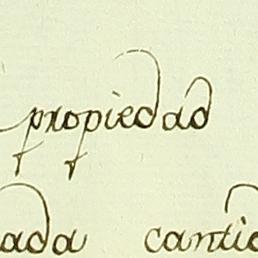 propiedad
ada cantid